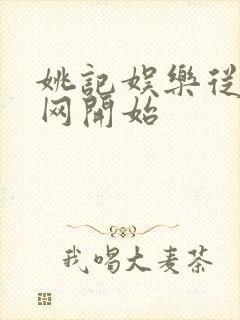 姚記娛樂從
网開始
我喝大麦茶